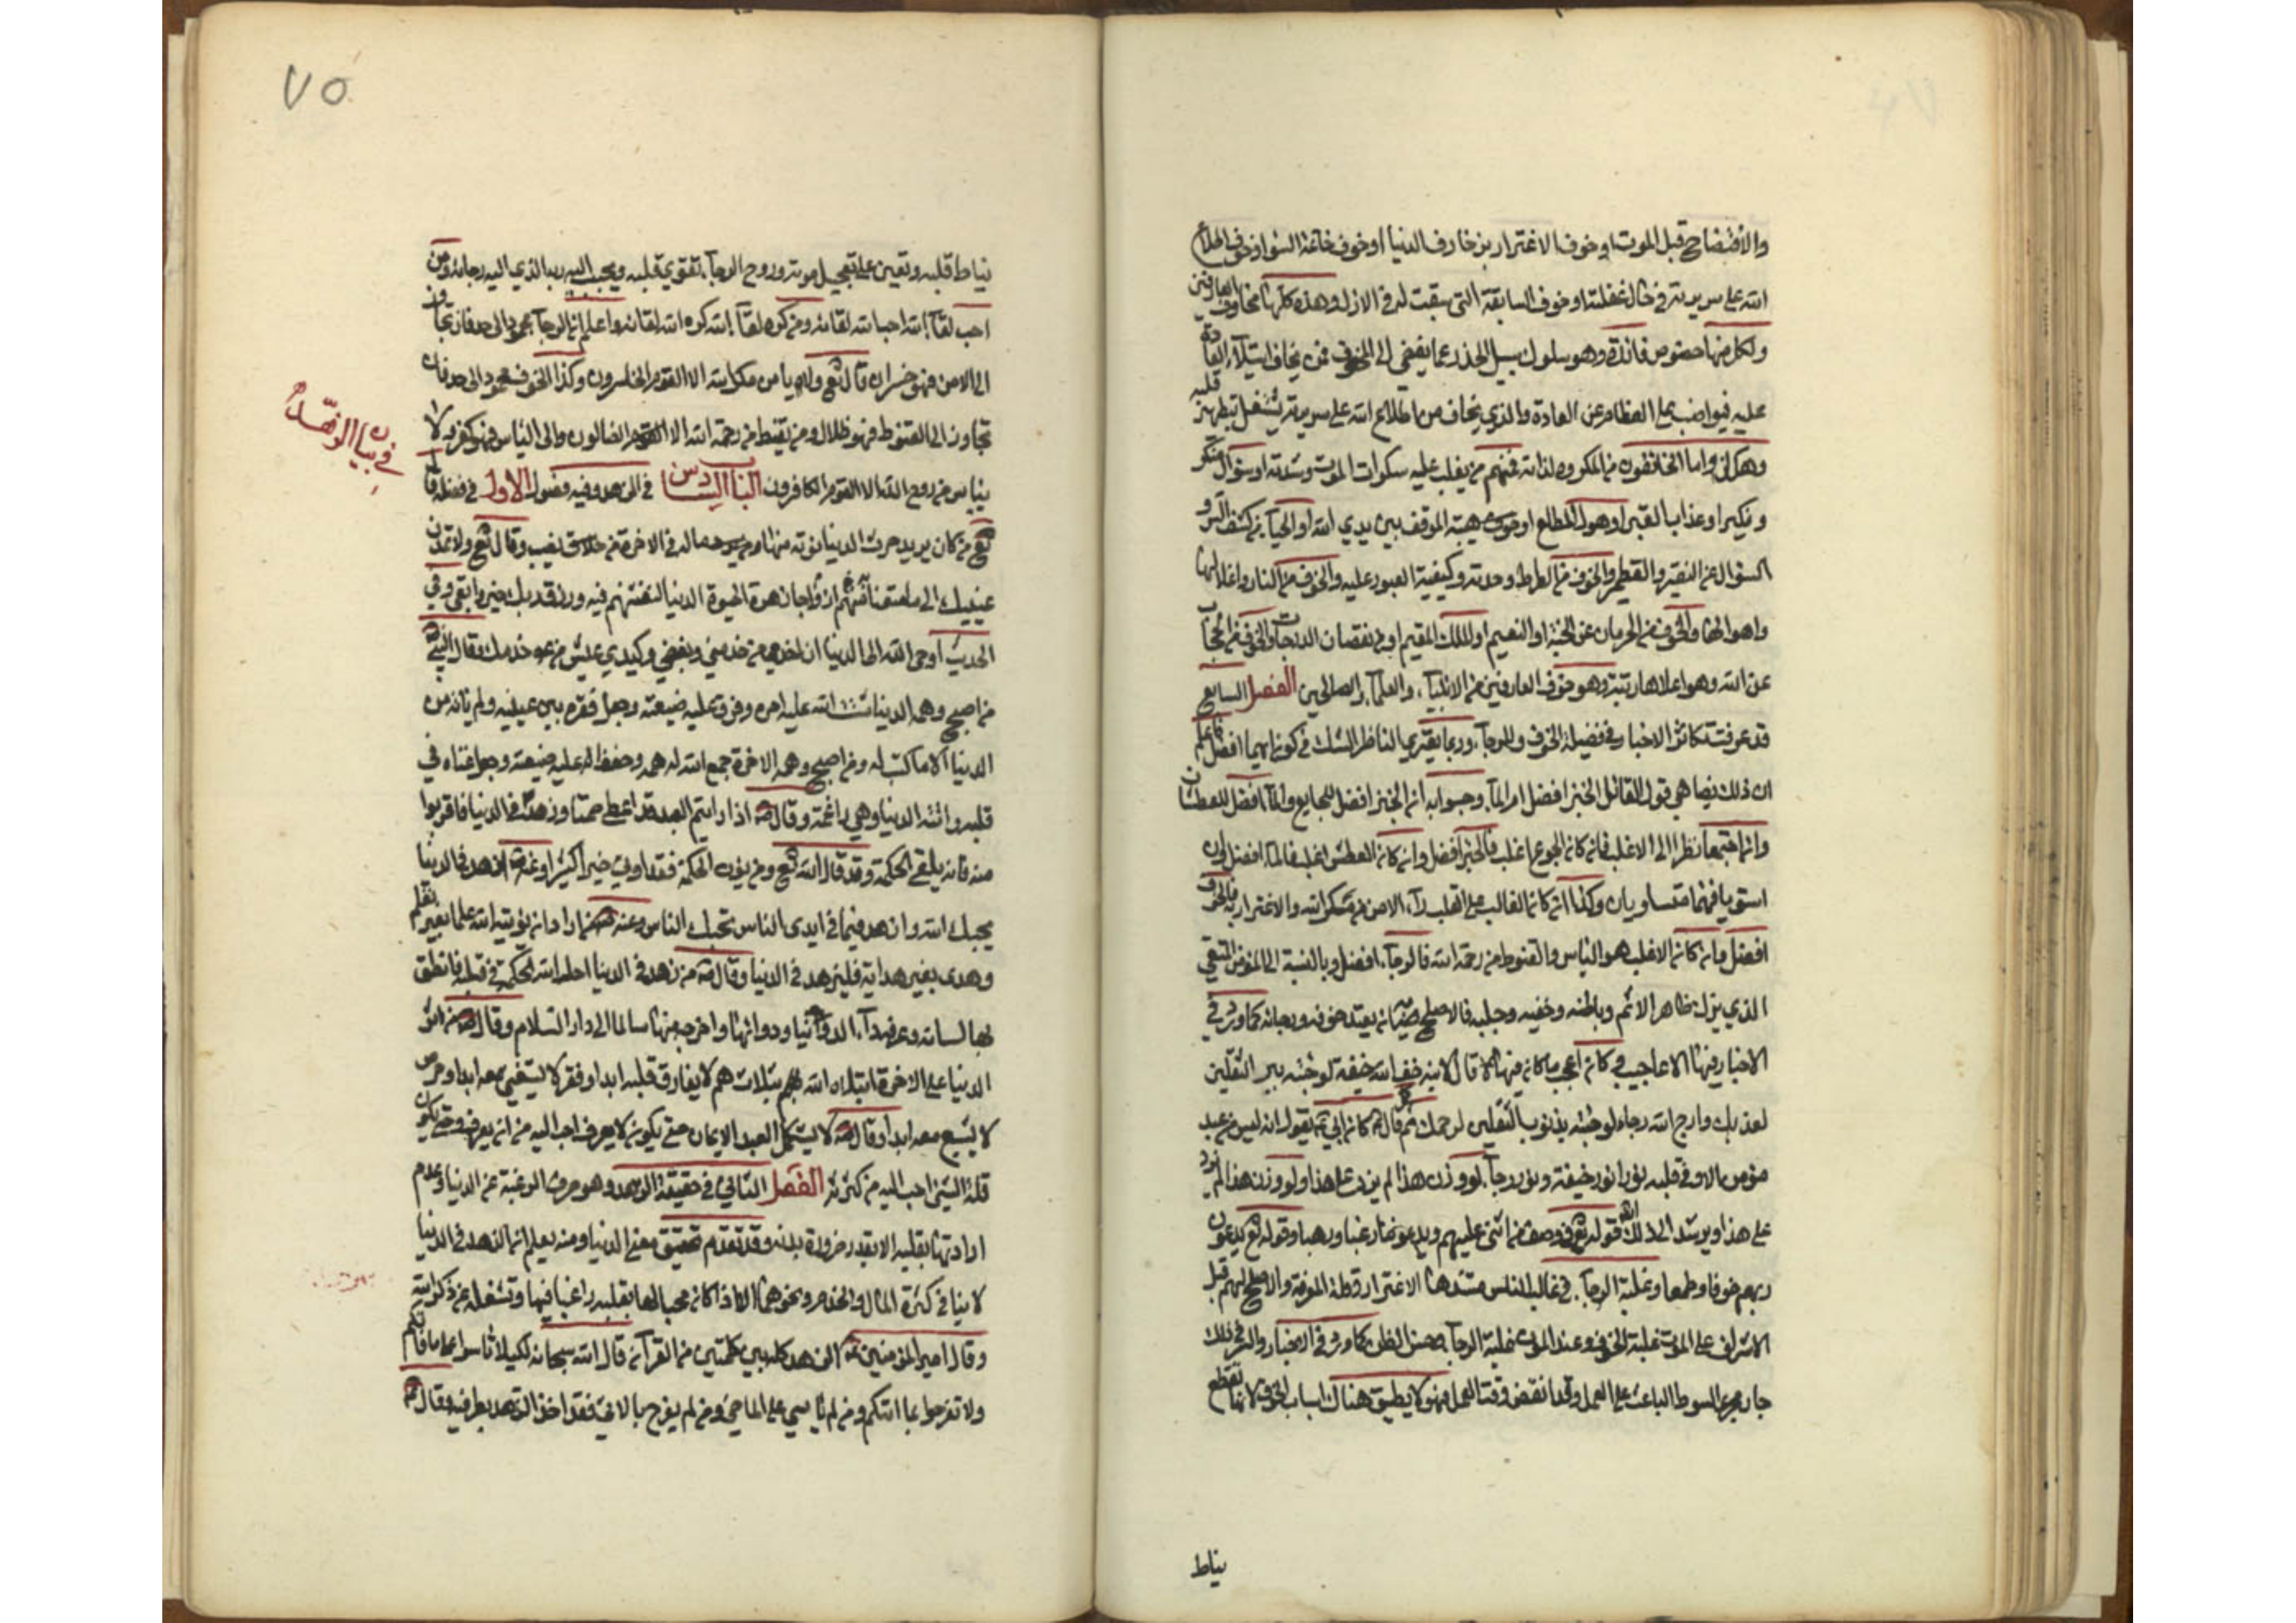 والافتضاح قبل الموت او خوف الاغترار بزخارف الدنيا او خوف خاتمة السوء او خوف اطلاع
الله على سريرته في حال غفلته او خوف السابقة التي سبقت له في الازل وهذه كلها مخاوف العارفين
ولكل منها خصوص فائدة وهو سلوك سبيل الحذر عما يفضي الى المخوف فمن يخاف استيلاء العادة
عليه فيواضب على الفطام عن العادة والذي يخاف من اطلاع الله على سريرته يشتغل بتطهير قلبه
وهكذا واما الخائفون من المكروه لذاته فمنهم من يغلب عليه سكرات الموت وشدته او سؤال منكر
ونكير او عذاب القبر او هول المطلع او خوف هيبة الموقف بين يدي الله او الحياء من كشف الستر و
السؤال عن النقير والقطمير والخوف من الصراط وحدته وكيفية العبور عليه والخوف من النار واغلالها
واهوالها والخوف من الحرمان عن الجنة او النعيم او الملك المقيم او من نقصان الدرجات والخوف من الحجاب
عن الله وهو اعلاها رتبة وهو خوف العارفين من الانبياء والعلماء والصالحين الفصل السابع
قد عرفت تكاثر الاخبار في فضيلة الخوف والرجاء وربما يعتري الناظر الشك في كون ايهما افضل فاعلم
ان ذلك يضاهي قول القائل الخبز افضل ام الماء وجوابه ان الخبز افضل للجايع والماء افضل للعطشان
وان اجتمعا نظرا الى الاغلب فان كان الجوع اغلب فالخبز افضل وان كان العطش اغلب فالماء افضل وان
استويا فهما متساويان وكذا ان كان الغالب على القلب داء الامن من مكر الله والاغترار به فالخوف
افضل وان كان الاغلب هو الياس والقنوط من رحمة الله فالرجاء افضل وبالنسبة الى المؤمن المتقي
الذي ترك ظاهر الاثم وباطنه وخفيه وجليه فالاصلح ان يعتدل خوفه ورجائه كما ورد في
الاخبار فيها الاعاجيب وكان اعجب ما كان فيها ان قال لابنه خف الله خيفة لو جئته ببر الثقلين
لعذبك وارج الله رجاء لو جئته بذنوب الثقلين لرحمك ثم قال كان ابي يقول انه ليس من عبد
مؤمن الا وفي قلبه نوران نور خيفة ونور رجاء لو وزن هذا لم يزد على هذا ولو وزن هذا لم يزد
على هذا ويرشد الى ذلك قوله تع في وصف من اثنى عليهم ويدعوننا رغبا ورهبا وقوله تع يدعون
ربهم خوفا وطمعا وغلبة الرجاء في غالب الناس منشاها الاغترار وقلة المعرفة والاصلح لهم قبل
الاشراف على الموت غلبة الخوف وعند الموت غلبة الرجاء وحسن الظن كما ورد في الاخبار والسر في ذلك
جار مجرى السوط الباعث على العمل وقد انقضى وقت العمل فهو لا يطيق هناك اسباب الخوف لانها تقطع
نياط
٧٥
نياط قلبه وتعين على تعجيل موته وروح الرجاء تقوي قلبه ويحبب اليه ربه الذي اليه رجائه ومن
احب لقاء الله احب الله لقائه ومن كره لقاء الله كره الله لقائه واعلم ان الرجاء محمود الى حد فان تجاوز
الى الامن فهو خسران قال تع ولا يامن مكر الله الا القوم الخاسرون وكذا الخوف محمود الى حد فان
تجاوز الى القنوط فهو ظلال ومن يقنط من رحمة الله الا القوم الضالون والى الياس فهو كفر لا
ييأس من روح الله الا القوم الكافرون الباب السادس في الزهد وفيه فصول الاول في فضله قال
تع من كان يريد حرث الدنيا نؤته منها وما له في الاخرة من نصيب وقال تع ولا تمدن
عينيك الى ما متعنا به ازواجا منهم زهرة الحيوة الدنيا لنفتنهم فيه ورزق ربك خير وابقى وفي
الحديث اوحى الله الى الدنيا ان اخدمي من خدمني وبغضي وكيدي عيش من خدمك وقال النبي
من اصبح وهمه الدنيا شتت الله عليه امره وفرق عليه ضيعته وجعل فقره بين عينيه ولم يأته من
الدنيا الا ما كتب له ومن اصبح وهمه الاخرة جمع الله له همه وحفظ عليه ضيعته وجعل غناه في
قلبه واتته الدنيا وهي راغمة وقال اذا رايتم العبد قد اعطى صمتا وزهدا في الدنيا فاقربوا
منه فانه يلقي الحكمة وقد قال الله تع ومن يؤت الحكمة فقد اوتي خيرا كثيرا وعنه ازهد في الدنيا
يحبك الله وازهد فيما في ايدى الناس يحبك الناس وعنه من اراد ان يؤتيه الله علما بغير تعلم
وهدى بغير هداية فليزهد في الدنيا وقال من زهد في الدنيا احل الله الحكمة في قلبه فانطق
بها لسانه وعرفه داء الدنيا ودوائها واخرجه منها سالما الى دار السلام وقال من اثر
الدنيا على الاخرة ابتلاه الله بثلاث هم لا يفارق قلبه ابدا وفقر لا يستغني معه ابدا وحرص
لا يشبع معه ابدا وقال لا يستكمل العبد الايمان حتى يكون ان لا يعرف احب اليه من ان يعرف وحتى يكون
قلة الشئ احب اليه من كثرته الفصل الثاني في حقيقة الزهد وهو صرف الرغبة عن الدنيا وعدم
ارادتها بقلبه الا بقدر ضرورة بدنه وقد تقدم تحقيق معنى الدنيا ومنه يعلم ان الزهد في الدنيا
لا ينافي كثرة المال والخدم ونحوهما الا اذا كان محبا لها بقلبه راغبا فيها وتشغله عن ذكر الله
وقال امير المؤمنين الزهد كله بين كلمتين من القرآن قال الله سبحانه لكيلا تاسوا على ما فاتكم
ولا تفرحوا بما اتيكم ومن لم ياسي على الماضي ومن لم يفرح بالاتي فقد اخذ الزهد بطرفيه وقال
في بيان الزهد